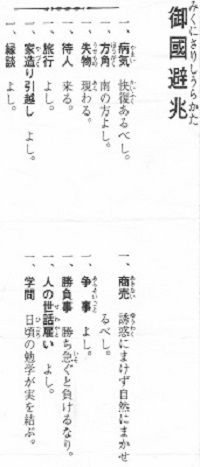 みくにさりしうらかた
御國避兆
一、病気 快復あるべし。
一、方角 南の方よし。
一、失物 現わる。
一、待人 来る。
一、旅行 よし。
一、家造り引越し よし。
一、縁談 よし。
一、商売 誘惑にまけず自然にまかせ
るべし。
一、争事 よし。
一、勝負事 勝ち急ぐと負けるなり。
一、人の世話雇い よし。
一、学問 日頃の勉学が実を結ぶ。